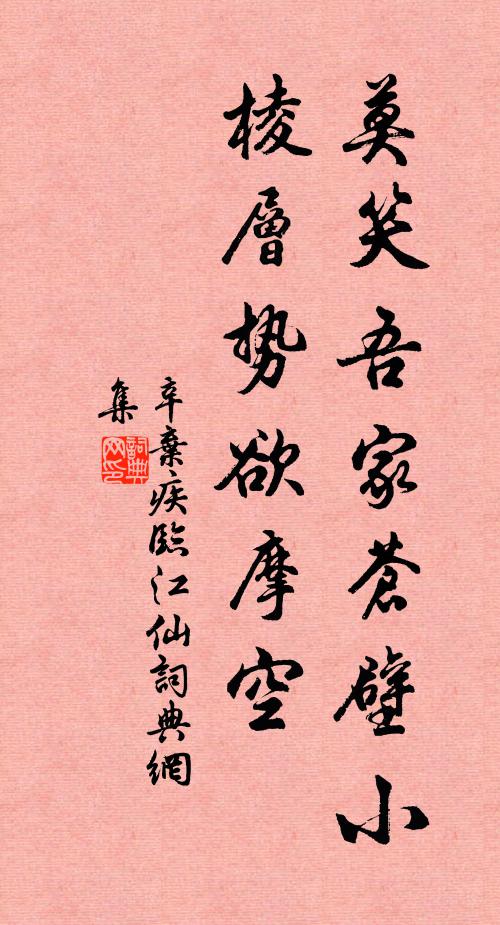 莫笑吾家蒼壁小
棱層勢欲摩空
辛棄疾臨江仙詞典網
集
詞典
网印